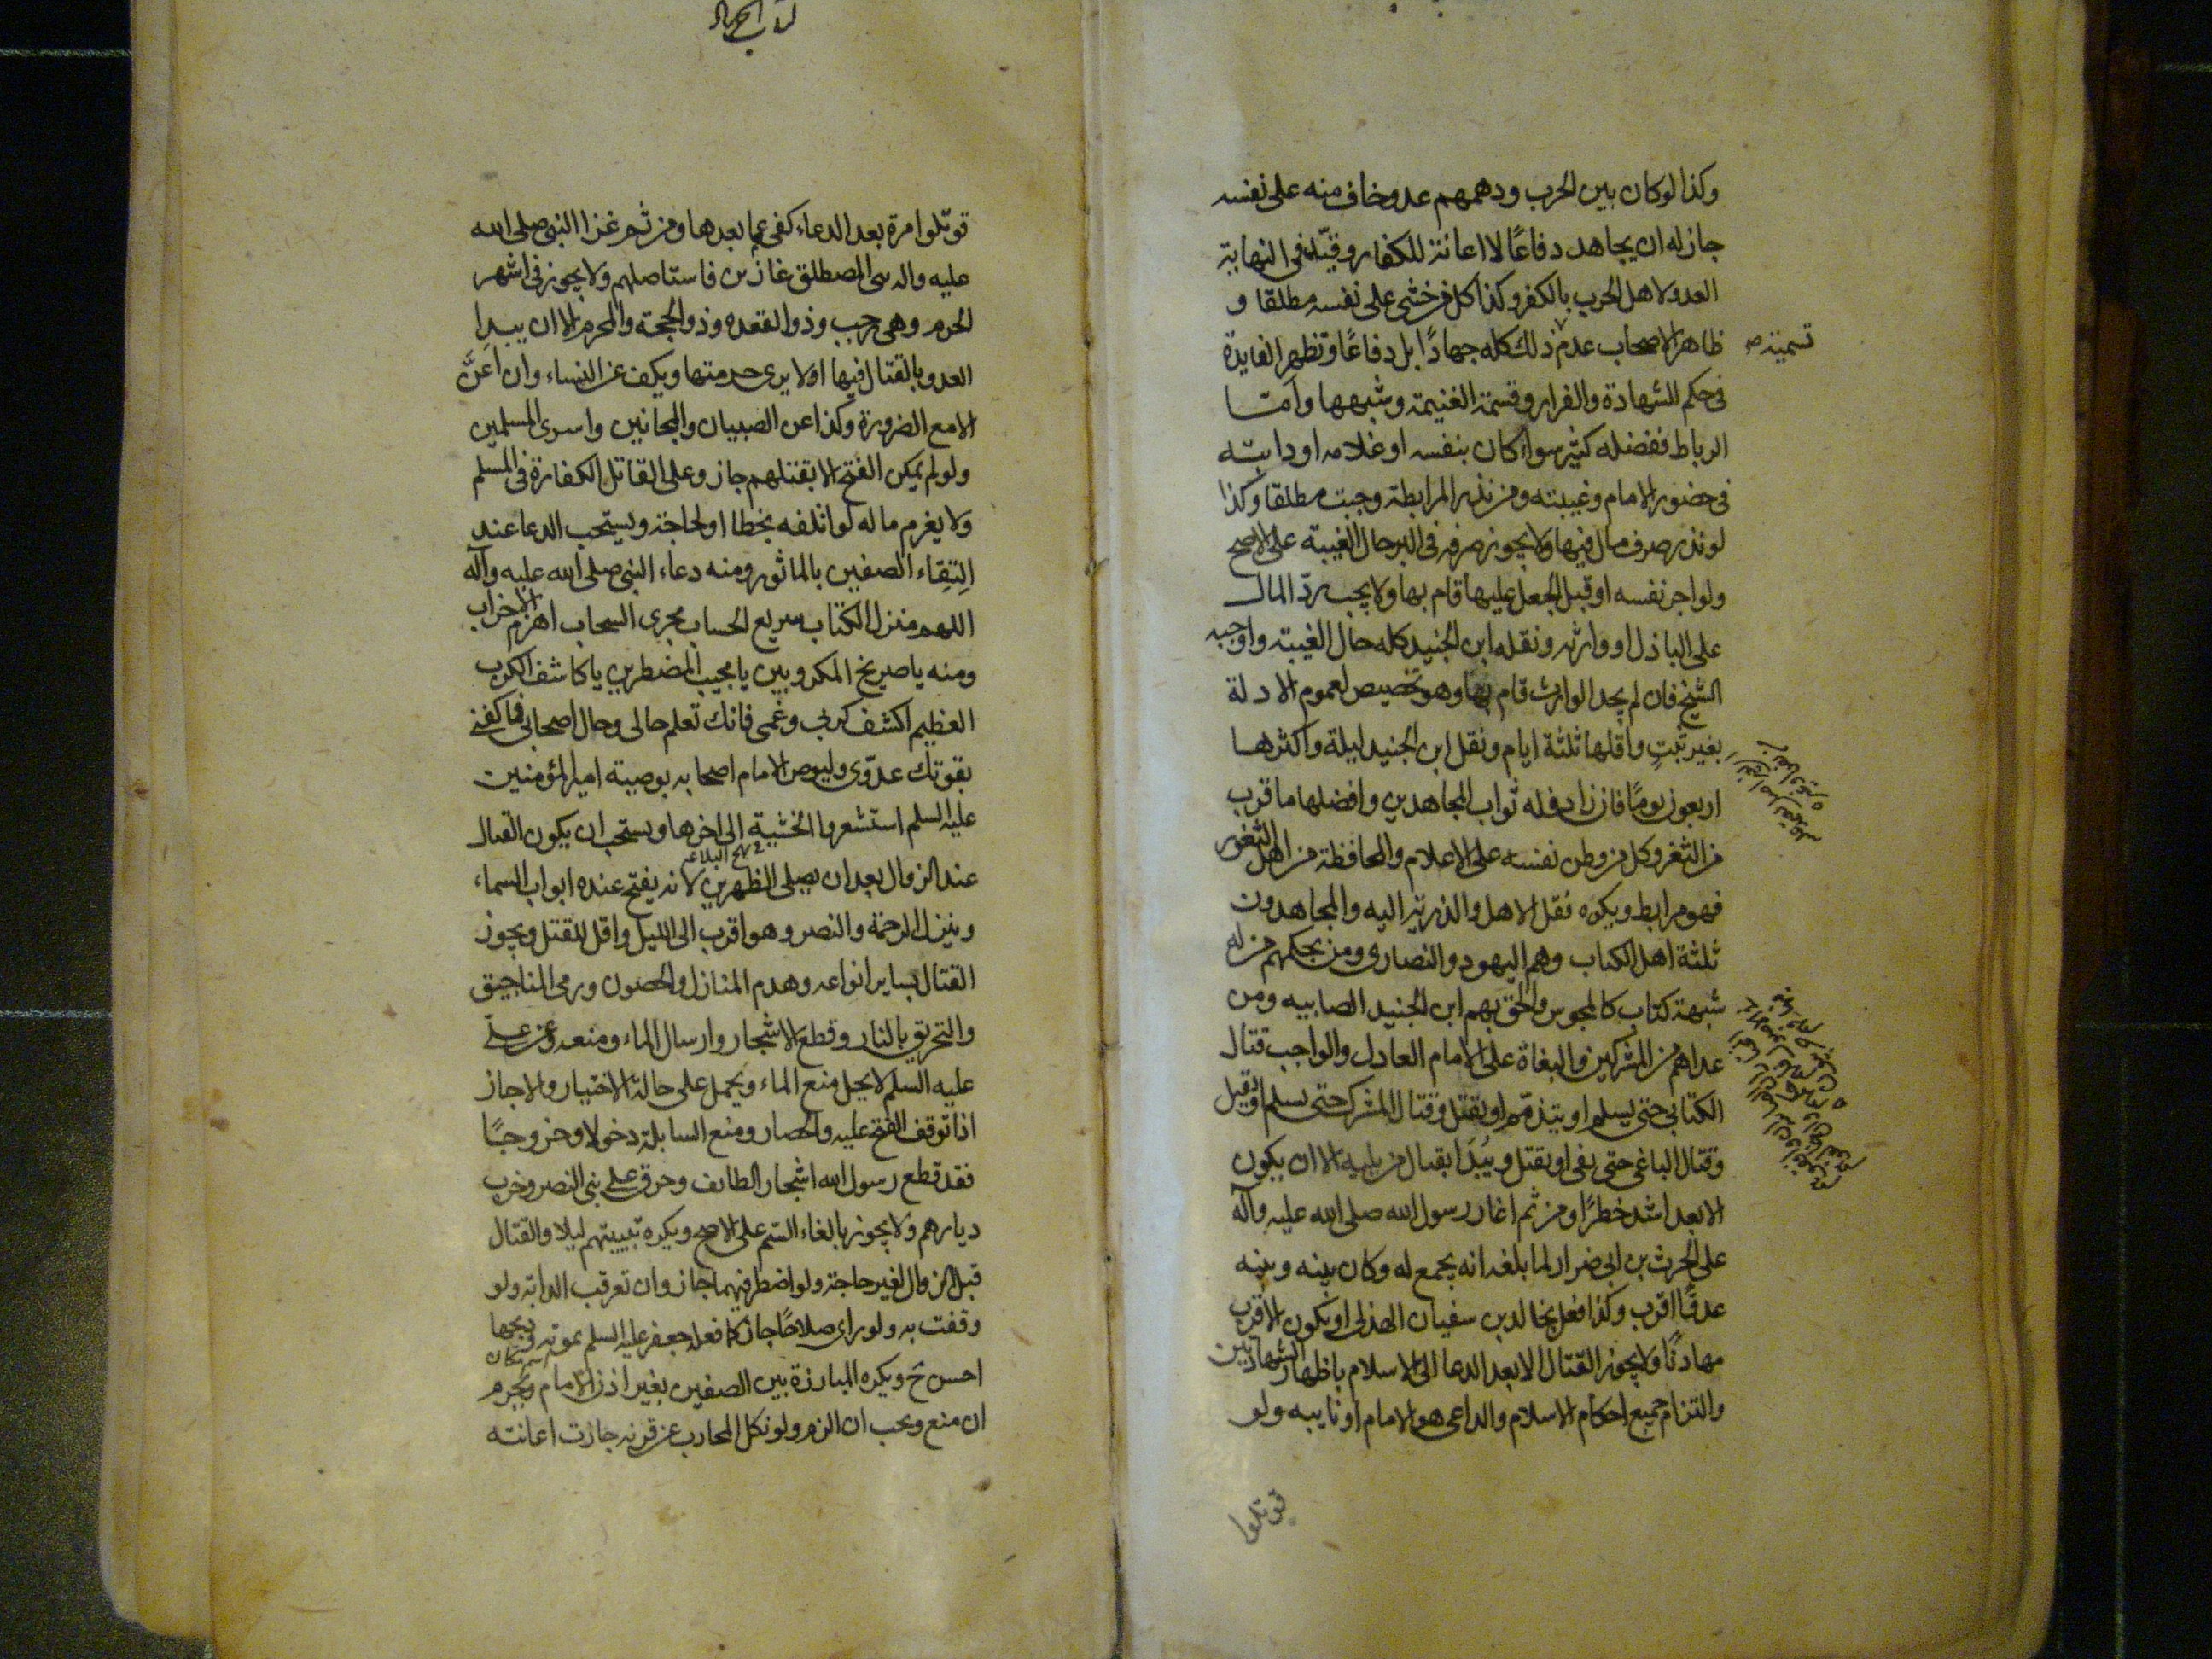 وكذا لو كان بين الحرب ودهمهم عدو خاف منه على نفسه
جاز له ان يجاهد دفاعًا لا اعانة للكفار وقيّد فى النهاية
العدو لاهل الحرب بالكفر وكذا كل من خشى على نفسه مطلقا و
ظاهر الاصحاب عدم ذلك كله جهادًا بل دفاعًا وتظهر الفايدة
تسميته صح
فى حكم الشهادة والفرار وقسمة الغنيمة وشبهها وامّا
الرباط ففضله كثير سواء كان بنفسه او غلامه او دابته
فى حضور الامام وغيبته ومن نذر المرابطة وجبت مطلقا وكذا
لو نذر صرف مال فيها ولا يجوز صرفه فى البر حال الغيبة على الاصح
ولو اجر نفسه او قبل الجعل عليها قام بها ولا يجب ردّ المال
على الباذل او وارثه ونقله ابن الجنيد كله حال الغيبة واوجبه
الشيخ فان لم يجد الوارث قام بها وهو تخصيص لعموم الادلة
بغير ثبتٍ واقلها ثلثة ايام ونقل ابن الجنيد ليلة واكثرها
اربعون يومًا فان زاد فله ثواب المجاهدين وافضلها ما قرب
من الثغر وكل من وطن نفسه على الاعلام والمحافظة من اهل الثغور
فهو مرابط ويكره نقل الاهل والذرية اليه والمجاهدون
ثلثة اهل الكتاب وهم اليهود والنصارى ومن بحكمهم من له
شبهة كتاب كالمجوس والحق بهم ابن الجنيد الصابيه ومن
عداهم من المشركين والبغاة على الامام العادل والواجب قتال
الكتابى حتى يسلم او يتذمّم او يقتل وقتال المشرك حتى يسلم او يقتل
وقتال الباغى حتى يفى او يقتل ويُبدَا بقتال من يليه الا ان يكون
الابعد اشد خطرًا ومن ثم اغار رسول الله صلى الله عليه وآله
على الحرث بن ابى ضرار لما بلغه انه يجمع له وكان بينه وبينه
عدوًّا اقرب وكذا فعل بخالد بن سفيان الهذلى او يكون الاقرب
مهادنًا ولا يجوز القتال الا بعد الدعا الى الاسلام باظهار الشهادتين
والتزام جميع احكام الاسلام والداعى هو الامام او نايبه ولو
قوتلوا
كتاب الجهاد
قوتلوا مرة بعد الدعاء كفى عما بعدها ومن ثم غزا النبى صلى الله
عليه واله بنى المصطلق غازين فاستاصلهم ولا يجوز فى اشهر
الحرم وهى رجب وذو القعده وذو الحجة والمحرم الا ان يبدا
العدو بالقتال فيها او لا يرى حرمتها ويكف عن النساء وان اعنَّ
الا مع الضرورة وكذا عن الصبيان والمجانين واسرى المسلمين
ولو لم يمكن الفتح الا بقتلهم جاز وعلى القاتل الكفارة فى المسلم
ولا يغرم ماله لو اتلفه بخطا او لحاجة ويستحب الدعا عند
اِلتقاء الصفين بالماثور ومنه دعاء النبى صلى الله عليه وآله
اللهم منزل الكتاب سريع الحساب مجرى السحاب اهزم الاحزاب
ومنه يا صريخ المكروبين يا مجيب المضطرين يا كاشف الكرب
العظيم اكشف كربى وغمى فانك تعلم حالى وحال اصحابى فاكفنى
بقوتك عدوّى وليوص الامام اصحابه بوصية امير المؤمنين
عليه السلم استشعروا الخشية الى اخرها ويستحب ان يكون القتال
نهج البلاغه
عند الزوال بعد ان يصلى الظهرين لانه يفتح عنده ابواب السماء
وينزل الرحمة والنصر وهو اقرب الى الليل واقل للقتل ويجوز
القتال بساير انواعه وهدم المنازل والحصون ورمى المناجيق
والتحريق بالنار وقطع الاشجار وارسال الماء ومنعه وعن على
عليه السلم لا يحل منع الماء ويحمل على حالة الاختيار والا جاز
اذا توقف الفتح عليه والحصار ومنع السابلة دخولا وخروجًا
فقد قطع رسول الله اشجار الطايف وحرق على بنى النضر وخرب
ديارهم ولا يجوز بالغاء السّم على الاصح ويكره تبييتهم ليلا والقتال
قبل الزوال لغير حاجة ولو اضطر فيهما جاز وان تعرقب الدابة ولو
وقفت به ولو راى صلاحًا جاز كما فعل جعفر عليه السلم بموته وذبحها
اسم مكان
احسن ح ويكره المبارزة بين الصفين بغير اذن الامام ويحرم
ان منع ويجب ان الزم ولو نكل المحارب عن قرنه جازت اعانته